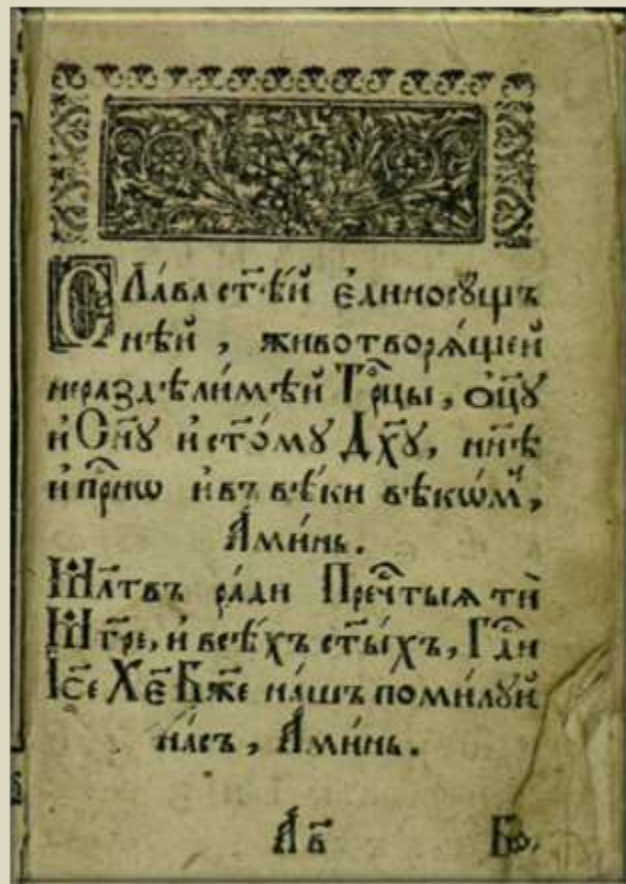 Сла́ва ст҃ѣ́й є҆диносꙋщъ
нѣй , животворѧ́щей
нераздѣли́мѣй Трⷪ҇цы , ѻц҃ꙋ
и҆ Сн҃ꙋ и҆ ст҃о́мꙋ Дх҃ꙋ , нн҃ѣ
и҆ прⷭ҇нѡ и҆ въ вѣ́ки вѣкѡ́мъ ,
А҆ми́нь .
Мл҃твъ ра́ди Преч҇тыѧ тѝ
Мт҃ре , и҆ всѣ́хъ ст҃ы́хъ , Гдⷭ҇и
І҆с҃е Хе҃ Бж҃е на́шъ поми́лꙋй
на́съ , А҆ми́нь .
А҆ в҃ Бо ,